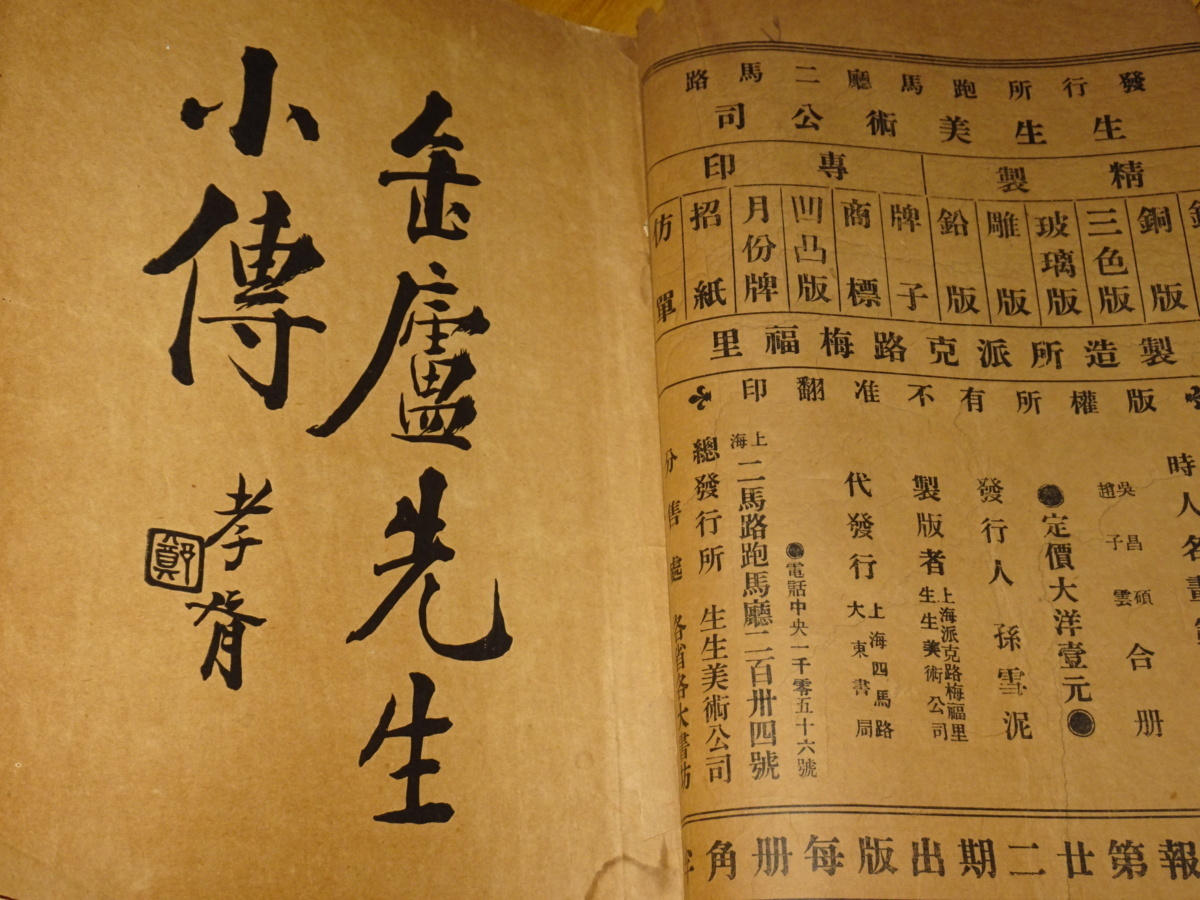 缶廬先生
小傳
孝胥
鄭
發行所跑馬廳二馬路
生生美術公司
精製
專印
銅版
三色版
玻璃版
雕版
鉛版
牌子
商標
凹凸版
月份牌
招紙
仿單
製造所派克路梅福里
版權所有不准翻印
時人名畫
吳昌碩
趙子雲
合册
●定價大洋壹元●
發行人 孫雪泥
製版者
上海派克路梅福里
生生美術公司
代發行
上海四馬路
大東書局
●電話中央一千零五十六號
上海二馬路跑馬廳二百卅四號
總發行所 生生美術公司
分售處 各省各大書坊
報第廿二期出版每册角